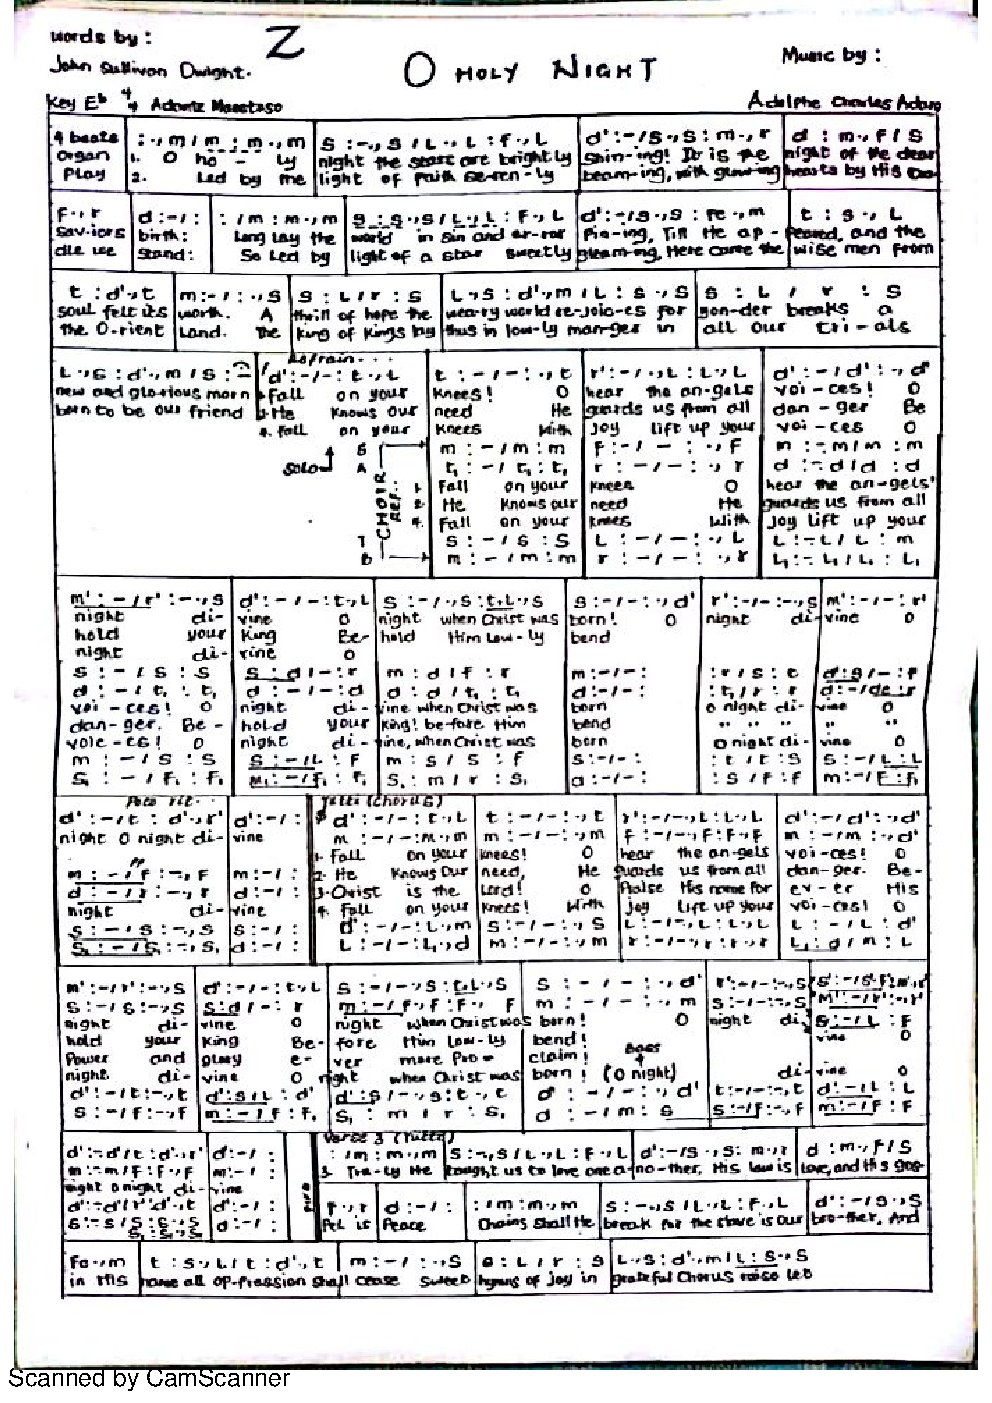 words by :
Z
John Sullivan Dwight.
O HOLY NIGHT
Music by :
Key Eb 4/4
Adolphe Charles Adam
4 beats Organ Play
: ., m / m ; m ., m | S : - ., S / L ., L : F ., L | d' : - / S ., S : m ., r | d : m ., F / S
1. O ho - ly night the stars are brightly Shin-ing! It is the night of the dear
2. Led by the light of Faith se-ren-ly beam-ing, with glowing hearts by His
F ., r | d : - / : | : / m : m ., m | S : S ., S / L ., L : F ., L | d' : - / S ., S : fe ., m | t : S ., L
Sav-iors birth: Long Lay the world in Sin and er-ror Pin-ing, Till He ap - Peared, and the
dle we Stand: So Led by light of a star sweetly gleaming, Here came the wise men from
t : d' ., t | m : - / : ., S | S : L / r : S | L ., S : d' ., m / L : S ., S | S : L / r : S
soul felt its worth. A thrill of hope the weary world re-joic-es for yon-der breaks a
the O-rient Land. The King of Kings lay thus in low-ly man-ger in all our tri-als
Refrain - - -
L ., S : d' ., m / S : - | d' : - / - : t ., L | t : - / - : ., t | r' : - / - ., L : L ., L | d' : - / d' : ., d'
new and glorious morn Fall on your Knees! O hear the an-gels voi-ces! O
born to be our friend He Knows our need He guards us from all dan-ger Be
4. Fall on your Knees With Joy lift up your voi-ces O
S m : - / m : m | F : - / - : ., F | m : - m / m : m
SOLO A t₁ : - / t₁ : t₁ | r : - / - : ., r | d : - d / d : d
CHOIR REF:
1. Fall on your Knees O hear the an-gels'
2. He Knows our need He guards us from all
4. Fall on your Knees With Joy lift up your
T S : - / S : S | L : - / - : ., L | L : - L / L : m
B m : - / m : m | r : - / - : ., r | L₁ : - L₁ / L₁ : L₁
m' : - / r' : - ., S | d' : - / - : t ., L | S : - / ., S : t ., L ., S | S : - / - : ., d' | r' : - / - : ., S | m' : - / - : r'
night di- vine O night when Christ was born! O night di- vine O
hold your King Be- hold Him Low-ly bend
night di- vine O
S : - / S : S | S : d / - : r | m : d / f : r | m : - / - : | : r / S : t | d : S / - : f
d : - / t₁ : t₁ | d : - / - : d | d : d / t₁ : t₁ | d : - / - : | : t₁ / r : r | d : - / de : r
voi-ces! O night di- vine when Christ was born O night di- vine O
dan-ger. Be- hold your King! be-fore Him bend " " " " "
voic-es! O night di- vine, when Christ was born O night di- vine O
m : - / S : S | S : - / L : F | m : S / S : f | S : - / - : | : t / t : S | S : - / L : L
S₁ : - / F₁ : F₁ | m₁ : - / F₁ : F₁ | S₁ : m / r : S₁ | d : - / - : | : S / F : f | m : - / F : F₁
Poco rit. . . Tutti (Chorus)
d' : - / t : d' ., r' | d' : - / : | d' : - / - : t ., L | t : - / - : ., t | r' : - / - ., L : L ., L | d' : - / d' : ., d'
night O night di- vine m : - / - : m ., m | m : - / - : ., m | F : - / - ., F : F ., F | m : - / m : ., d'
1. Fall on your Knees! O hear the an-gels voi-ces! O
m : - / f : - ., F | m : - / : 2. He Knows Our need, He guards us from all dan-ger. Be-
d : - / - : - ., r | d : - / : 3. Christ is the Lord! O Praise His name for ev-er His
night di- vine 4. Fall on your Knees! With Joy lift up your voi-ces! O
S : - / S : - ., S | S : - / : d' : - / - : L ., m | S : - / - : ., S | L : - / - ., L : L ., L | L : - / L : d'
S₁ : - / S : - ., S₁ | d : - / : L : - / - : L₁ ., d | m : - / - : ., m | r : - / - ., r : r ., r | L₁ : d / m : L
m' : - / r' : - ., S | d' : - / - : t ., L | S : - / - ., S : t ., L ., S | S : - / - : ., d' | r' : - / - : ., S
S : - / S : - ., S | S : d / - : r | m : - / f ., f : F ., F | m : - / - : ., m | S : - / - : ., S
night di- vine O night when Christ was born! O night di- vine O
hold your King Be- fore Him Low-ly bend!
Power and glory e- ver more Pro- claim! BASS
night. di- vine O night when Christ was born! (O night) di- vine O
d' : - / t : - ., t | d' : S / L : d' | d' : S / - ., S : t ., t | d' : - / - : ., d' | t : - / - : ., t | d' : - / L : L
S : - / F : - ., F | m : - / F : F₁ | S₁ : m / r : S₁ | d : - / m : S | S : - / F : - ., F | m : - / F : F
Verse 3 (Tutti)
d' : - d' / t : d' ., r' | d' : - / : | : / m : m ., m | S : - ., S / L ., L : F ., L | d' : - / S ., S : m ., r | d : m ., F / S
m : - m / F : F ., F | m : - / : 3. Tru-ly He taught us to love one a-no-ther, His law is love, and His gos-
night O night di- vine
d' : - d' / r' : d' ., t | d' : - / : F ., r | d : - / : | : / m : m ., m | S : - ., S / L ., L : F ., L | d' : - / S ., S
S : - S / S : S ., S | d : - / : Pel is Peace Chains Shall He break for the slave is our bro-ther, And
fa ., m | t : S ., L / t : d' ., t | m : - / : ., S | S : L / r : S | L ., S : d' ., m / L : S ., S
in His name all op-pression shall cease Sweet hymns of Joy in grateful Chorus raise let
Scanned by CamScanner